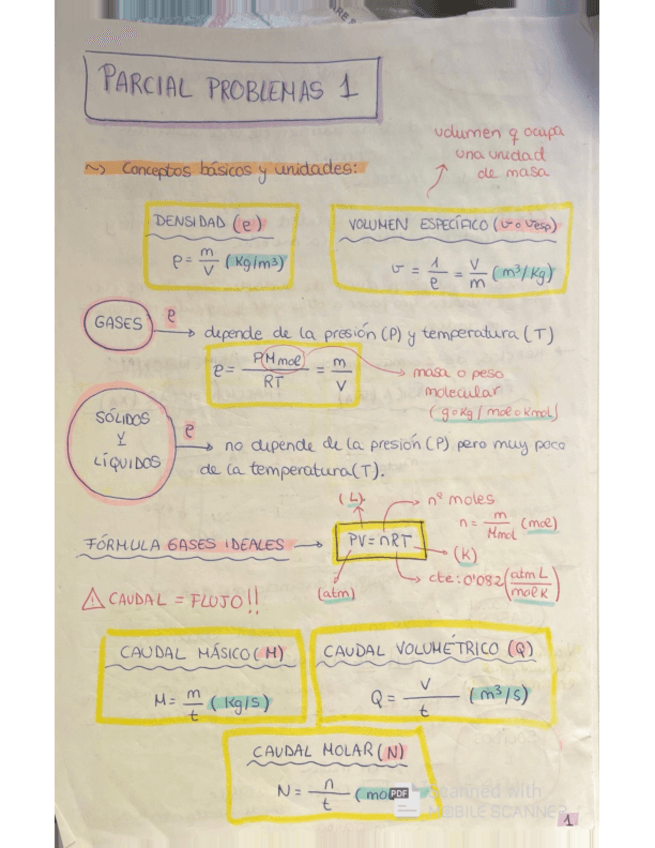 PARCIAL PROBLEMAS 1
volumen q ocupa
una unidad
de masa
~> Conceptos básicos y unidades:
DENSIDAD (ρ)
ρ = m/V (Kg/m³)
VOLUMEN ESPECÍFICO (v o vesp)
v = 1/ρ = V/m (m³/Kg)
GASES
ρ
→ depende de la presión (P) y temperatura (T)
ρ = P Mmol / RT = m/V
→ masa o peso
molecular
(g o Kg / mol o kmol)
SÓLIDOS
Y
LÍQUIDOS
ρ
→ no depende de la presión (P) pero muy poco
de la temperatura (T).
(L).
nº moles
n = m/Mmol (mol)
FÓRMULA GASES IDEALES → PV = nRT
(K)
(atm)
cte: 0'082 (atm L / mol K)
⚠ CAUDAL = FLUJO!!
CAUDAL MÁSICO (M)
M = m/t (Kg/s)
CAUDAL VOLUMÉTRICO (Q)
Q = V/t (m³/s)
CAUDAL MOLAR (N)
N = n/t
PDF
Scanned with
MOBILE SCANNER
1